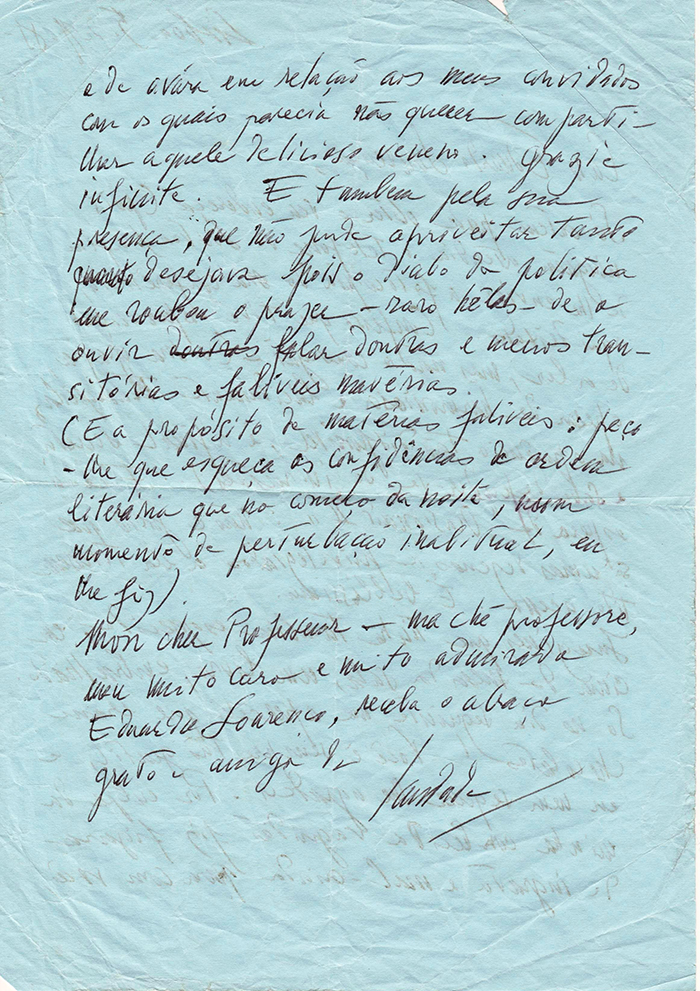 e de avára em relação aos meus convidados
com os quais parecia não querer comparti-
lhar aquele delicioso veneno. grazie
infinite. E tambem pela sua
presença, que não pude aproveitar tanto
quanto desejava pois o diabo da politica
me roubou o prazer - raro hélas - de o
ouvir doutras falar doutras e menos tran-
sitórias e falíveis matérias.
(E a propósito de matérias falíveis: peço
-lhe que esqueça as confidências de ordem
literária que no começo da noite, num
momento de perturbação inabitual, eu
lhe fiz)
Mon cher Professeur - ma ché professore,
meu muito caro e muito admirado
Eduardo Lourenço, receba o abraço
grato e amigo de